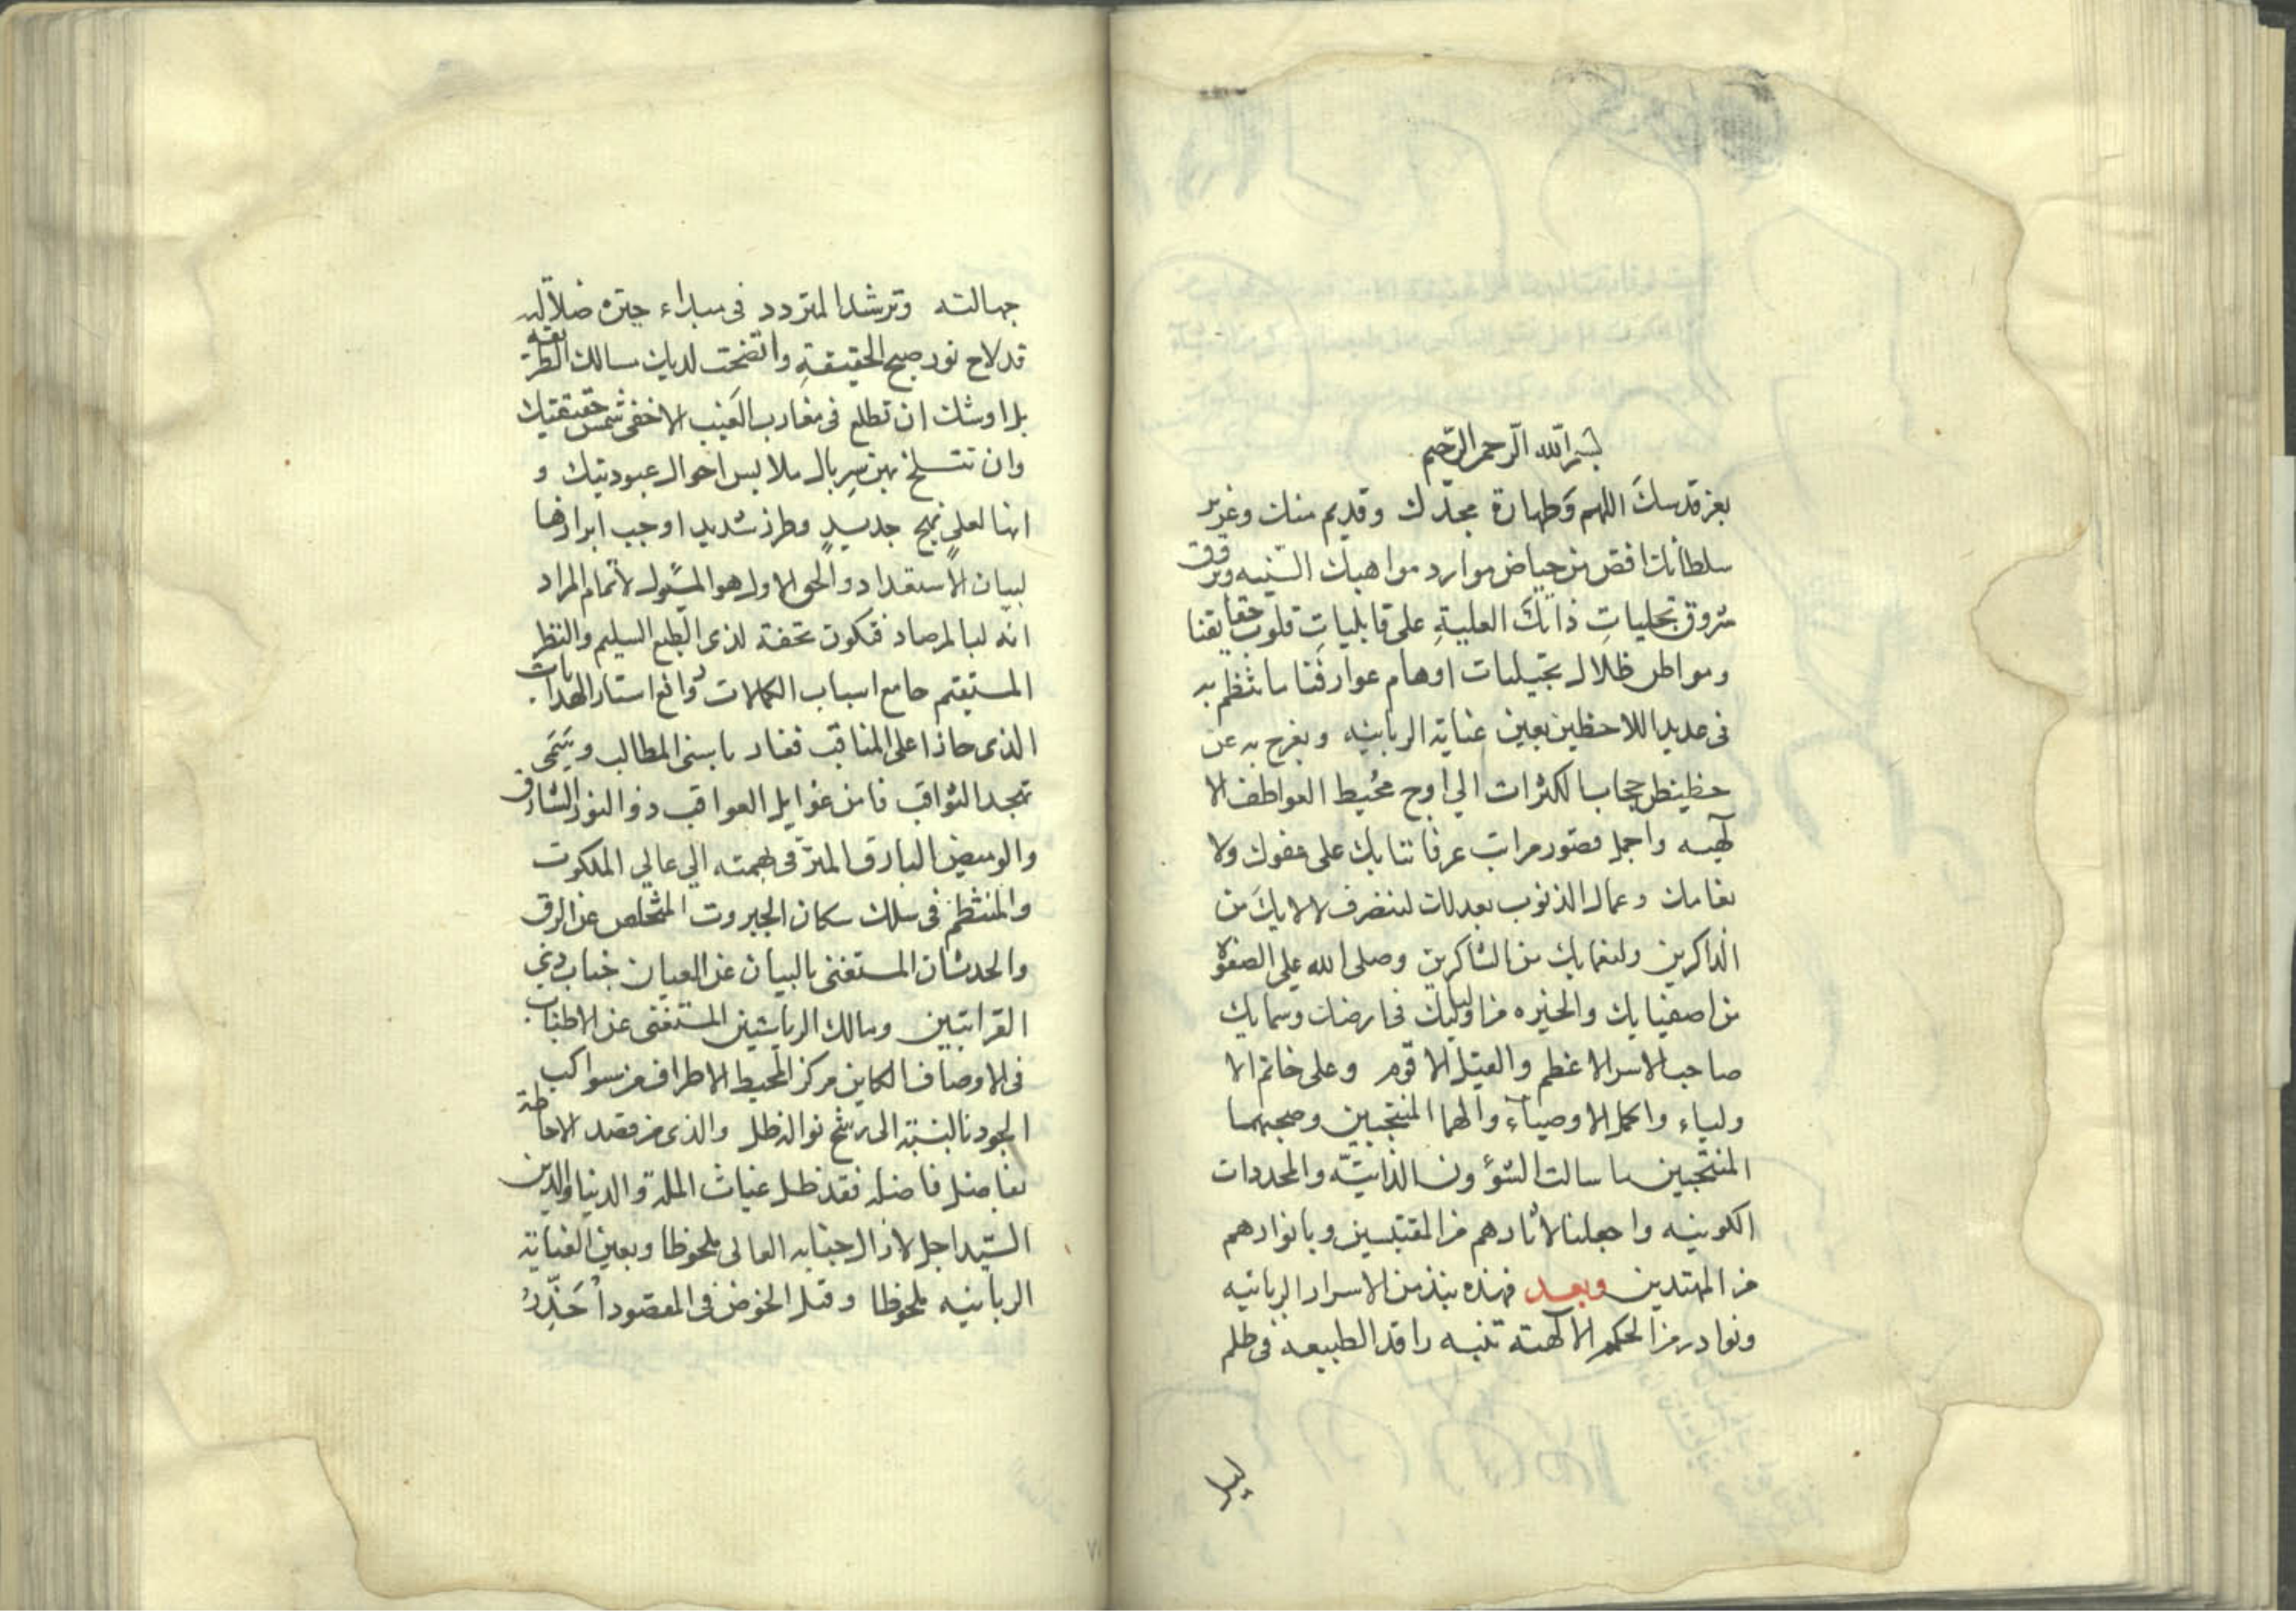 بسم الله الرحمن الرحيم
بعز قدسك اللهم وطهارة مجدك وقديم منك وغزير
سلطانك افض من حياض موارد مواهبك السنيه
شروق تجليات ذاتك العلية على قابليات قلوب حقايقنا
ومواطن ظلال تخيلات اوهام عوارفنا ما ننظم به
فى عديد اللاحظين بعين عناية الربانيه ويعرج به عن
حجاب الكثرات الي اوج محيط العواطف الا
لهيه واجمل قصور مراتب عرفاننا بك على عفوك ولا
الذنوب بعدلك لننصرف لالايك من
الذاكرين ولنعمايك من الشاكرين وصلى الله على الصفوة
من اصفيايك والخيره من اوليايك فى ارضك وسمايك
صاحب الاسر الاعظم والقيل الاقوم وعلى خاتم الا
ولياء واكمل الاوصياء والهما المنتجبين وصحبهما
المنتجبين ما سالت الشؤون الذاتيه والمحددات
الكونيه واجعلنا لاثارهم من المقتبسين وبانوارهم
من المهتدين وبعد فهذه نبذ من الاسرار الربانيه
ونوادر من الحكم الالهية تنبه راقد الطبيعه فى ظلم
جهالته وترشد المتردد فى بيداء حيرة ضلالته
قد لاح نور صبح الحقيقة واتضحت لديك مسالك الطريقه
بل اوشك ان تطلع فى مغارب الغيب الاخفى شمس حقيقتك
وان تنسلخ من سربال ملابس احوال عبوديتك و
انها لعلى نهج جديد وطرز شديد اوجب ابرازها
لبيان الاستعداد والحق الاول هو المسئول لاتمام المراد
انه لبالمرصاد فتكون تحفة لذى الطبع السليم والنظر
المستقيم جامع اسباب الكمالات رافع استار الهدايات
الذى حاز اعلى المناقب ففاد باسنى المطالب
الثواقب فامن غوايل العواقب ذو النور الشارق
والوميض البارق المترقى بهمته الي عالي الملكوت
والمنتظم فى سلك سكان الجبروت المتخلص عن الرق
والحدثان المستغنى بالبيان عن العيان جناب ذي
القرابتين ومالك الرياستين المستغنى عن الاطناب
فى الاوصاف الكاين مركز المحيط الاطراف من سواكب
الجود بالنسبة الى رشح نواله ظل والذى من قصد الاحاطة
بفاضل فاضله فقد ظل غياث الملة والدنيا والدين
السيد اجل لازال جنابه العالى ملحوظا وبعين العناية
الربانيه ملحوظا وقبل الخوض فى المقصود